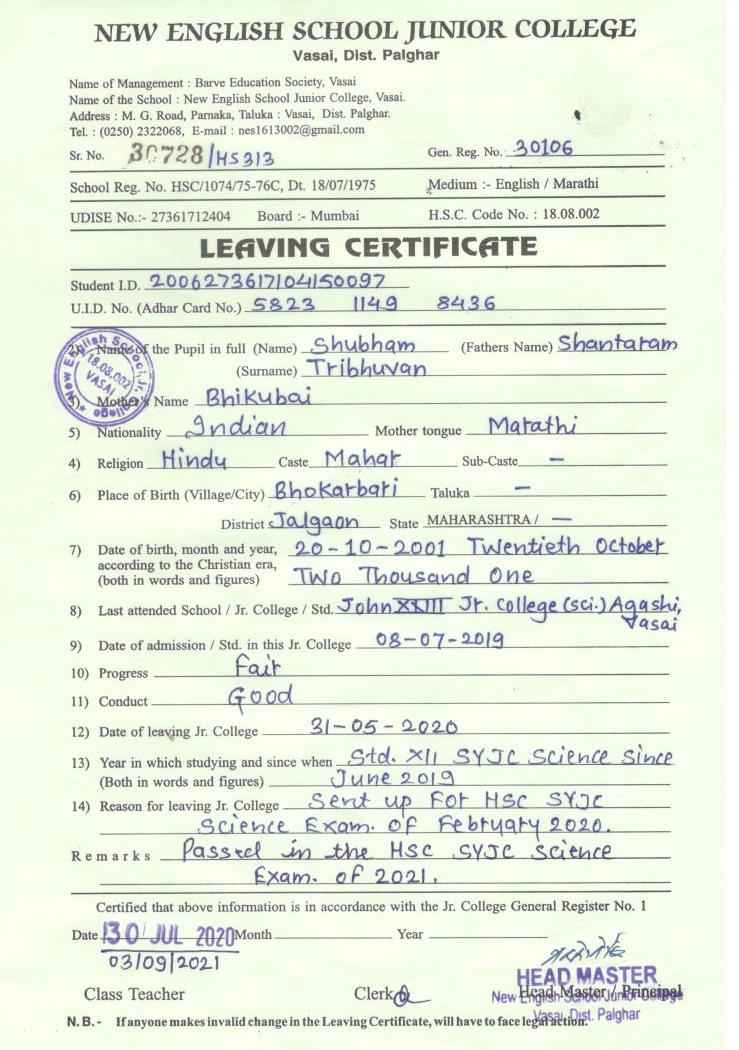 NEW ENGLISH SCHOOL JUNIOR COLLEGE
Vasai, Dist. Palghar
Name of Management : Barve Education Society, Vasai
Name of the School : New English School Junior College, Vasai.
Address : M. G. Road, Parnaka, Taluka : Vasai, Dist. Palghar.
Tel. : (0250) 2322068, E-mail : nes1613002@gmail.com
Sr. No. 30728/HS313 Gen. Reg. No. 30106
School Reg. No. HSC/1074/75-76C, Dt. 18/07/1975 Medium :- English / Marathi
UDISE No.:- 27361712404 Board :- Mumbai H.S.C. Code No. : 18.08.002
LEAVING CERTIFICATE
Student I.D. 2006273617104150097
U.I.D. No. (Adhar Card No.) 5823 1149 8436
2) Name of the Pupil in full (Name) Shubham (Fathers Name) Shantaram
(Surname) Tribhuvan
3) Mother's Name Bhikubai
New English School, Jr. College
18.08.002
VASAI
5) Nationality Indian Mother tongue Marathi
4) Religion Hindu Caste Mahar Sub-Caste —
6) Place of Birth (Village/City) Bhokarbari Taluka —
District Jalgaon State MAHARASHTRA / —
7) Date of birth, month and year, 20-10-2001 Twentieth October
according to the Christian era,
(both in words and figures) Two Thousand One
8) Last attended School / Jr. College / Std. John XXIII Jr. College (sci.) Agashi,
Vasai
9) Date of admission / Std. in this Jr. College 08-07-2019
10) Progress Fair
11) Conduct Good
12) Date of leaving Jr. College 31-05-2020
13) Year in which studying and since when Std. XII SYJC Science Since
(Both in words and figures) June 2019
14) Reason for leaving Jr. College Sent up For HSC SYJC
Science Exam. of February 2020.
Remarks Passed in the HSC SYJC Science
Exam. of 2021.
Certified that above information is in accordance with the Jr. College General Register No. 1
Date 30 JUL 2020 Month Year
03/09/2021
HEAD MASTER
Class Teacher Clerk Head Master / Principal
New English School Junior College
Vasai, Dist. Palghar
N.B.- If anyone makes invalid change in the Leaving Certificate, will have to face legal action.